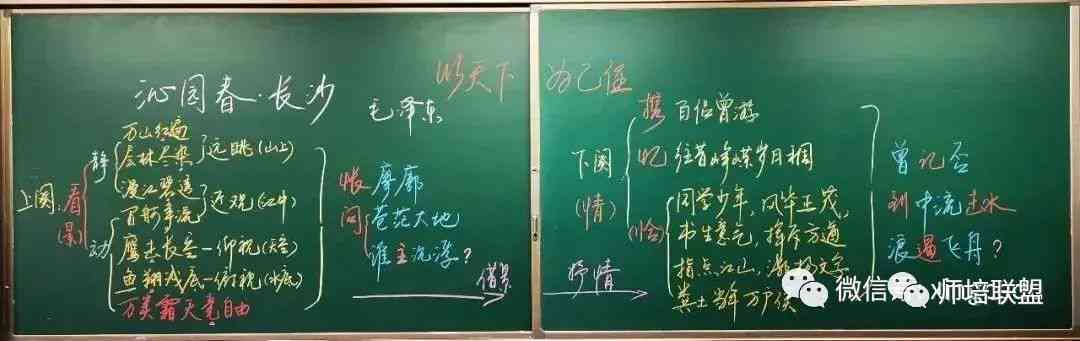 以天下为己任
沁园春·长沙
毛泽东
上阕:看(景)
静
万山红遍
层林尽染
远眺(山上)
漫江碧透
百舸争流
近观(江中)
动
鹰击长空—仰视(天空)
鱼翔浅底—俯视(水底)
万类霜天竞自由
怅寥廓
问苍茫大地
谁主沉浮?
借景
抒情
下阕
(情)
携 百侣曾游
忆 往昔峥嵘岁月稠
(恰)
同学少年,风华正茂,
书生意气,挥斥方遒
指点江山,激扬文字
粪土当年万户侯
曾记否
到中流击水
浪遏飞舟?
微信
师培联盟